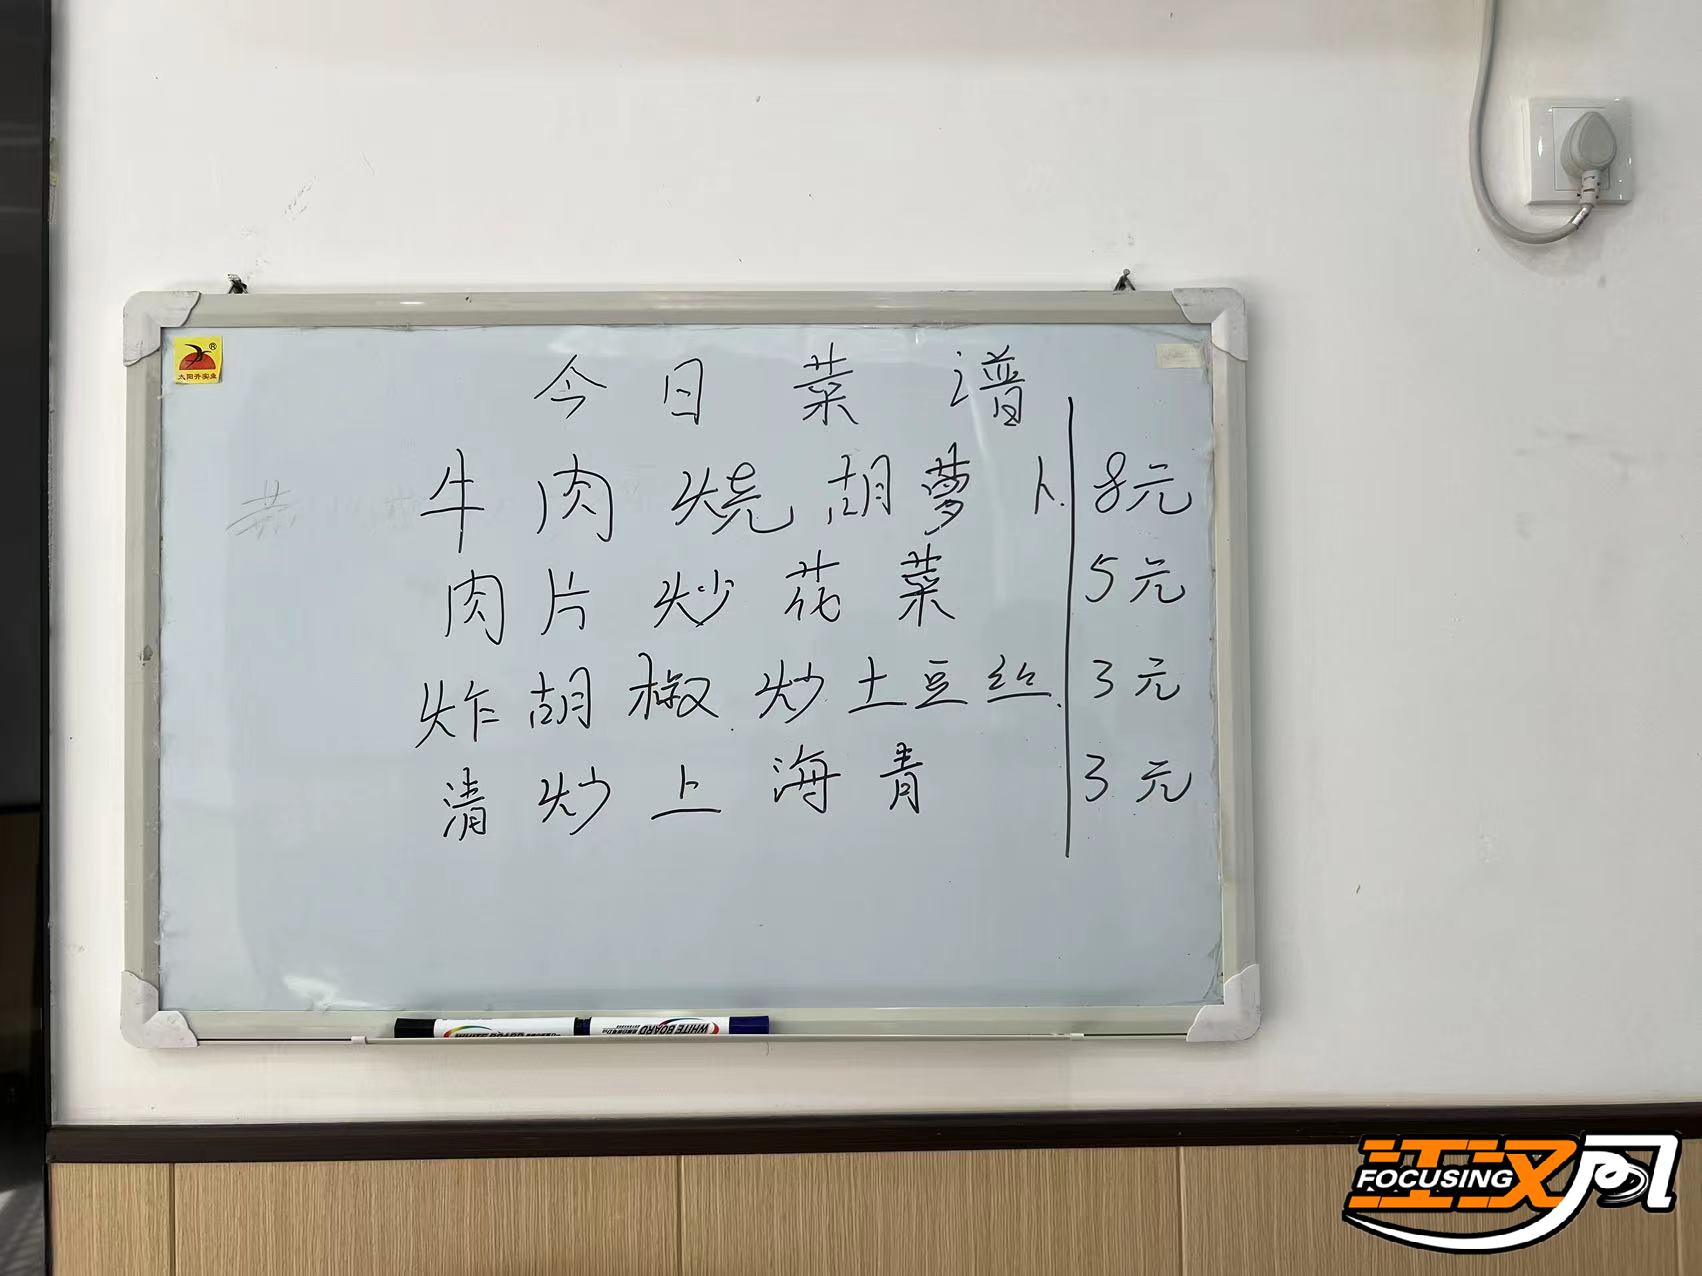 太阳升实业
今日菜谱
牛肉烧胡萝卜 8元
肉片炒花菜 5元
炸胡椒炒土豆丝 3元
清炒上海青 3元
WHITE BOARD
FOCUSING
江汉网